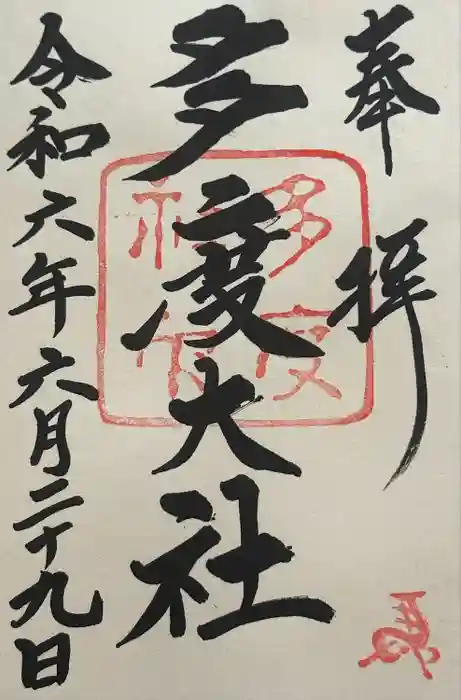 奉拝
多度大社
令和六年六月二十九日
多度